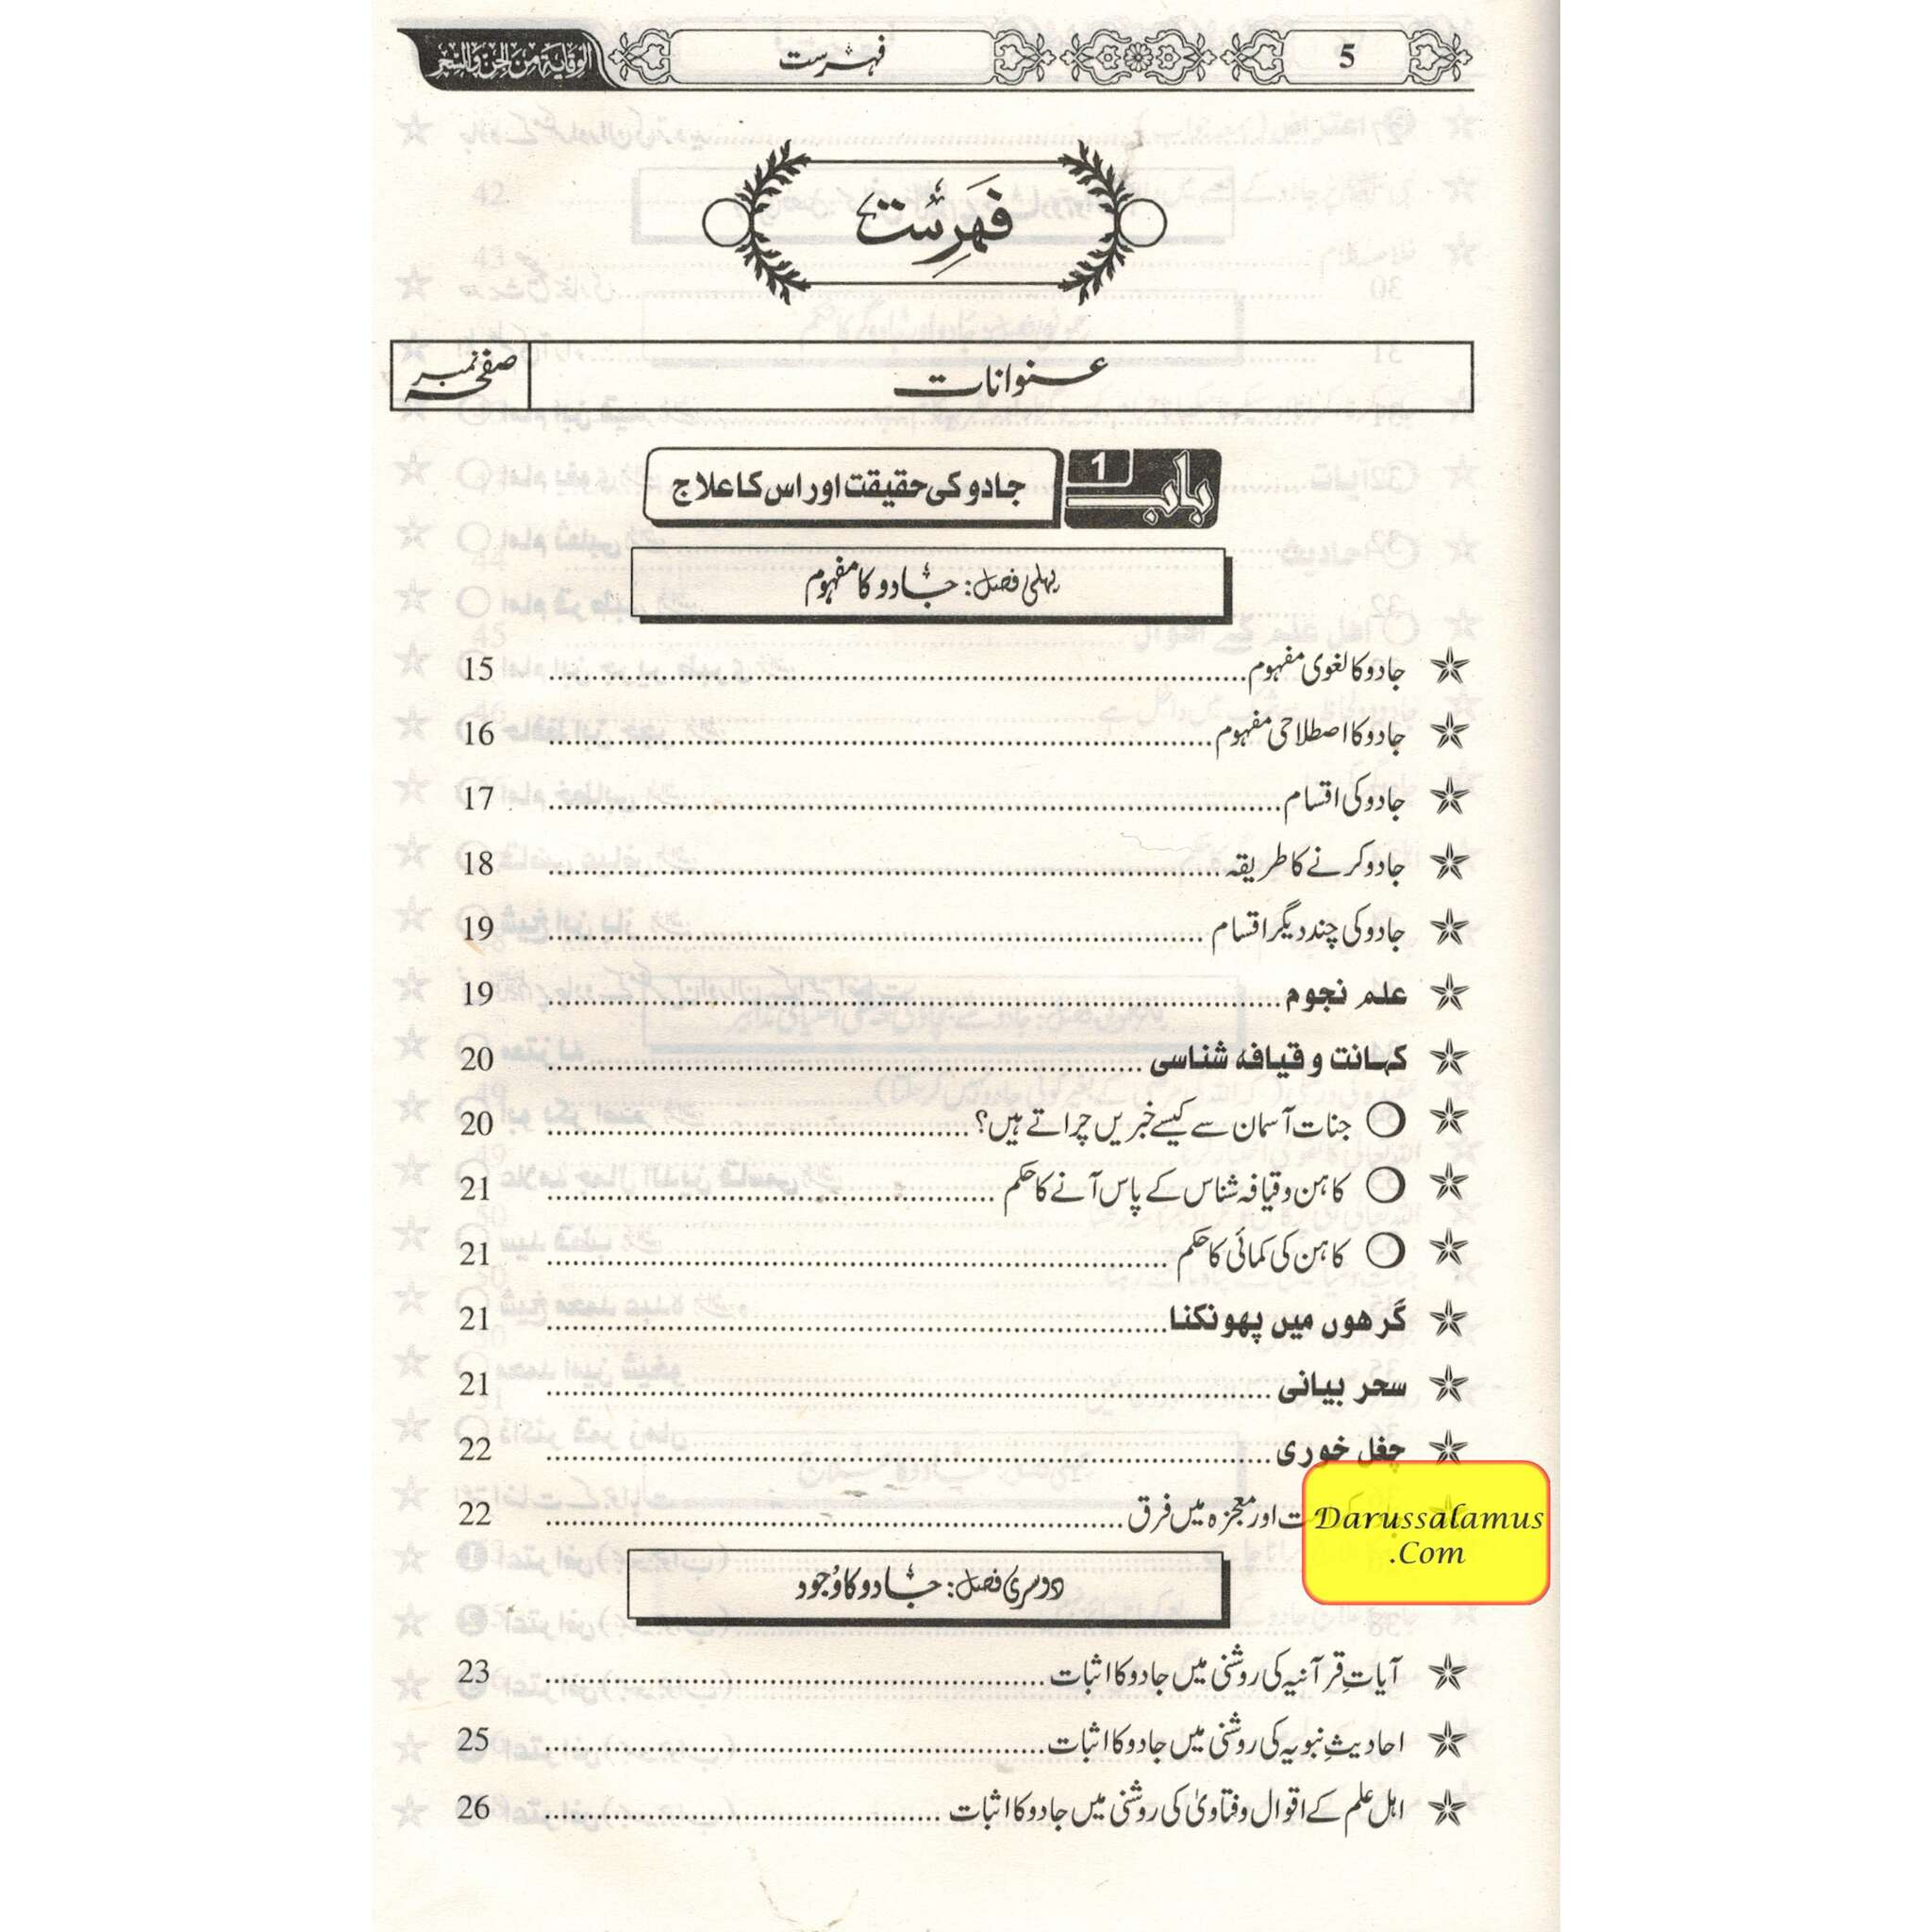 5
فہرست
الوقاية من الجن والسحر
فہرست
عنوانات
صفحہ نمبر
باب 1
جادو کی حقیقت اور اس کا علاج
پہلی فصل: جادو کا مفہوم
جادو کا لغوی مفہوم 15
جادو کا اصطلاحی مفہوم 16
جادو کی اقسام 17
جادو کرنے کا طریقہ 18
جادو کی چند دیگر اقسام 19
علم نجوم 19
کہانت و قیافہ شناسی 20
جنات آسمان سے کیسے خبریں چراتے ہیں؟ 20
کاہن و قیافہ شناس کے پاس آنے کا حکم 21
کاہن کی کمائی کا حکم 21
گرھوں میں پھونکنا 21
سحر بیانی 21
چغل خوری 22
اور معجزہ میں فرق 22
Darussalamus
.Com
دوسری فصل: جادو کا وُجود
آیاتِ قرآنیہ کی روشنی میں جادو کا اثبات 23
احادیثِ نبویہ کی روشنی میں جادو کا اثبات 25
اہل علم کے اقوال و فتاویٰ کی روشنی میں جادو کا اثبات 26